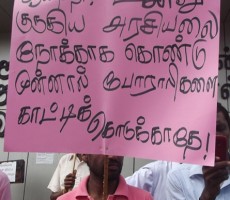 குறுகிய அரசியலை
நோக்காக கொண்டு
முன்னாள் போராளிகளை
காட்டிக்
கொடுக்காதே!